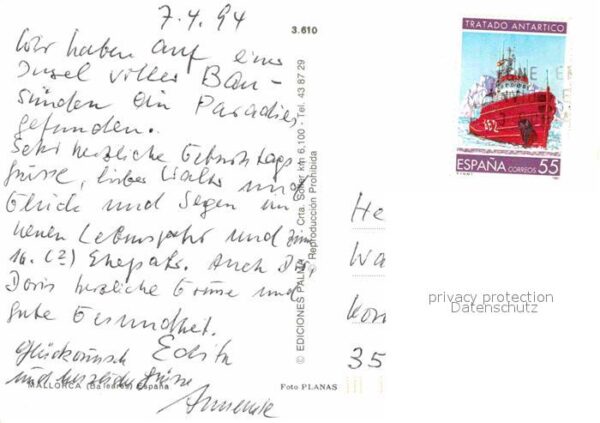 7.4.94
Wir haben auf einer
Insel voller Bau-
sünden ein Paradies
gefunden.
Sehr herzliche Geburtstags
grüsse, lieber Walter und
Glück und Segen im
neuen Lebensjahr und zum
16. (?) Ehejahr. Auch Dir,
Doris herzliche Grüsse und
gute Gesundheit.
Edith
Glückwunsch
und herzliche Grüsse
MALLORCA (Baleares) España
Foto PLANAS
3.610
© EDICIONES PALMA - Crta. Soller km 6,100 - Tel. 43 87 29
Reproducción Prohibida
TRATADO ANTARTICO
ESPAÑA CORREOS 55
He
Wa
35
privacy protection
Datenschutz